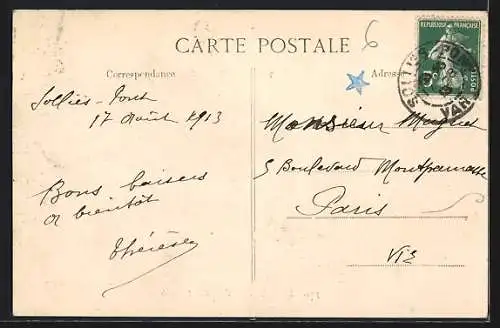 CARTE POSTALE
6
REPUBLIQUE FRANÇAISE
POSTES
SOLLIÈS-PONT
VAR
Correspondance
Adresse
Solliès-Pont
17 Août 1913
Bons baisers
à bientôt
Thérèse
Monsieur
5 Boulevard Montparnasse
Paris
VIe